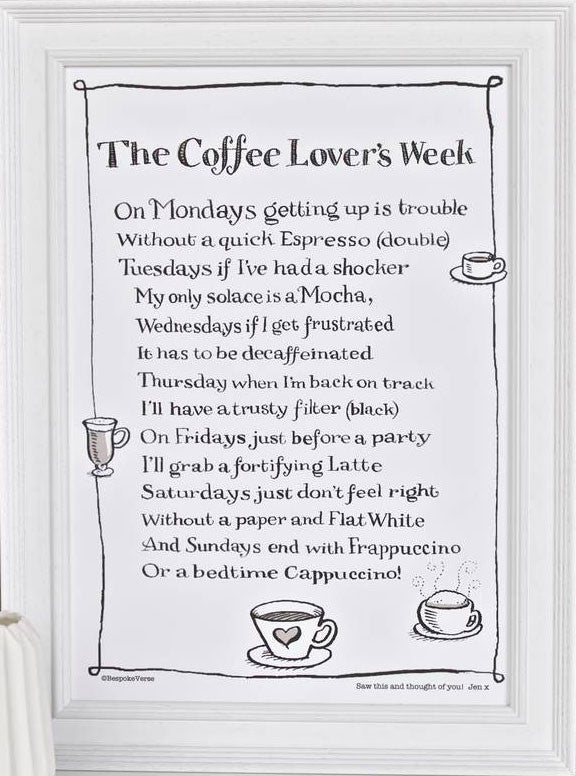 The Coffee Lover's Week
On Mondays getting up is trouble
Without a quick Espresso (double)
Tuesdays if I've had a shocker
My only solace is a Mocha,
Wednesdays if I get frustrated
It has to be decaffeinated
Thursday when I'm back on track
I'll have a trusty filter (black)
On Fridays just before a party
I'll grab a fortifying Latte
Saturdays just don't feel right
Without a paper and Flat White
And Sundays end with Frappuccino
Or a bedtime Cappuccino!
©BespokeVerse
Saw this and thought of you! Jen x